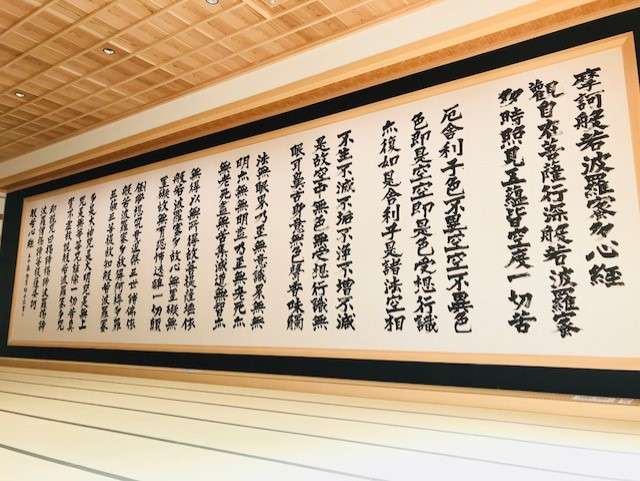 摩訶般若波羅蜜多心経
観自在菩薩行深般若波羅蜜
多時照見五蘊皆空度一切苦
厄舎利子色不異空空不異色
色即是空空即是色受想行識
亦復如是舎利子是諸法空相
不生不滅不垢不浄不増不減
是故空中無色無受想行識
無眼耳鼻舌身意無色声香味触
法無眼界乃至無意識界無無
明亦無無明尽乃至無老死亦
無老死尽無苦集滅道無智亦
無得以無所得故菩提薩埵依
般若波羅蜜多故心無罣礙無
罣礙故無有恐怖遠離一切顛
倒夢想究竟涅槃三世諸仏依
般若波羅蜜多故得阿耨多羅
三藐三菩提故知般若波羅蜜
多是大神咒是大明咒是無上
咒是無等等咒能除一切苦真
実不虚故説般若波羅蜜多咒
即説咒曰羯諦羯諦波羅羯諦
波羅僧羯諦菩提薩婆訶
般若心経